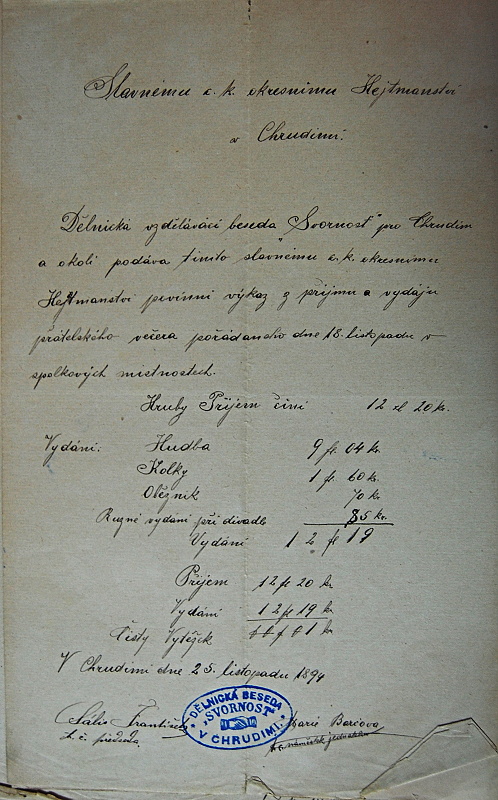 Slavnému c. k. okresnímu Hejtmanství
v Chrudimi.
Dělnická vzdělávácí beseda "Svornost" pro Chrudim
a okolí podává tímto slavnému c. k. okresnímu
Hejtmanství povinní výkaz z příjmu a vydáju
přátelského večera pořádaného dne 18. listopadu v
spolkových místnostech.
Hruby Příjem činí 12 zl 20 kr.
Vydání: Hudba 9 fl. 04 kr.
Kolky 1 fl. 60 kr.
Oběžník 70 kr.
Ruzné vydání při divadle 85 kr.
Vydání 12 fl 19
Příjem 12 fl 20 kr
Vydání 12 fl 19 kr
Čistý Výtěžek 1 kr
V Chrudimi dne 25. listopadu 1894
DĚLNICKÁ BESEDA
"SVORNOST"
V CHRUDIMI
František Marie
t. č. předseda